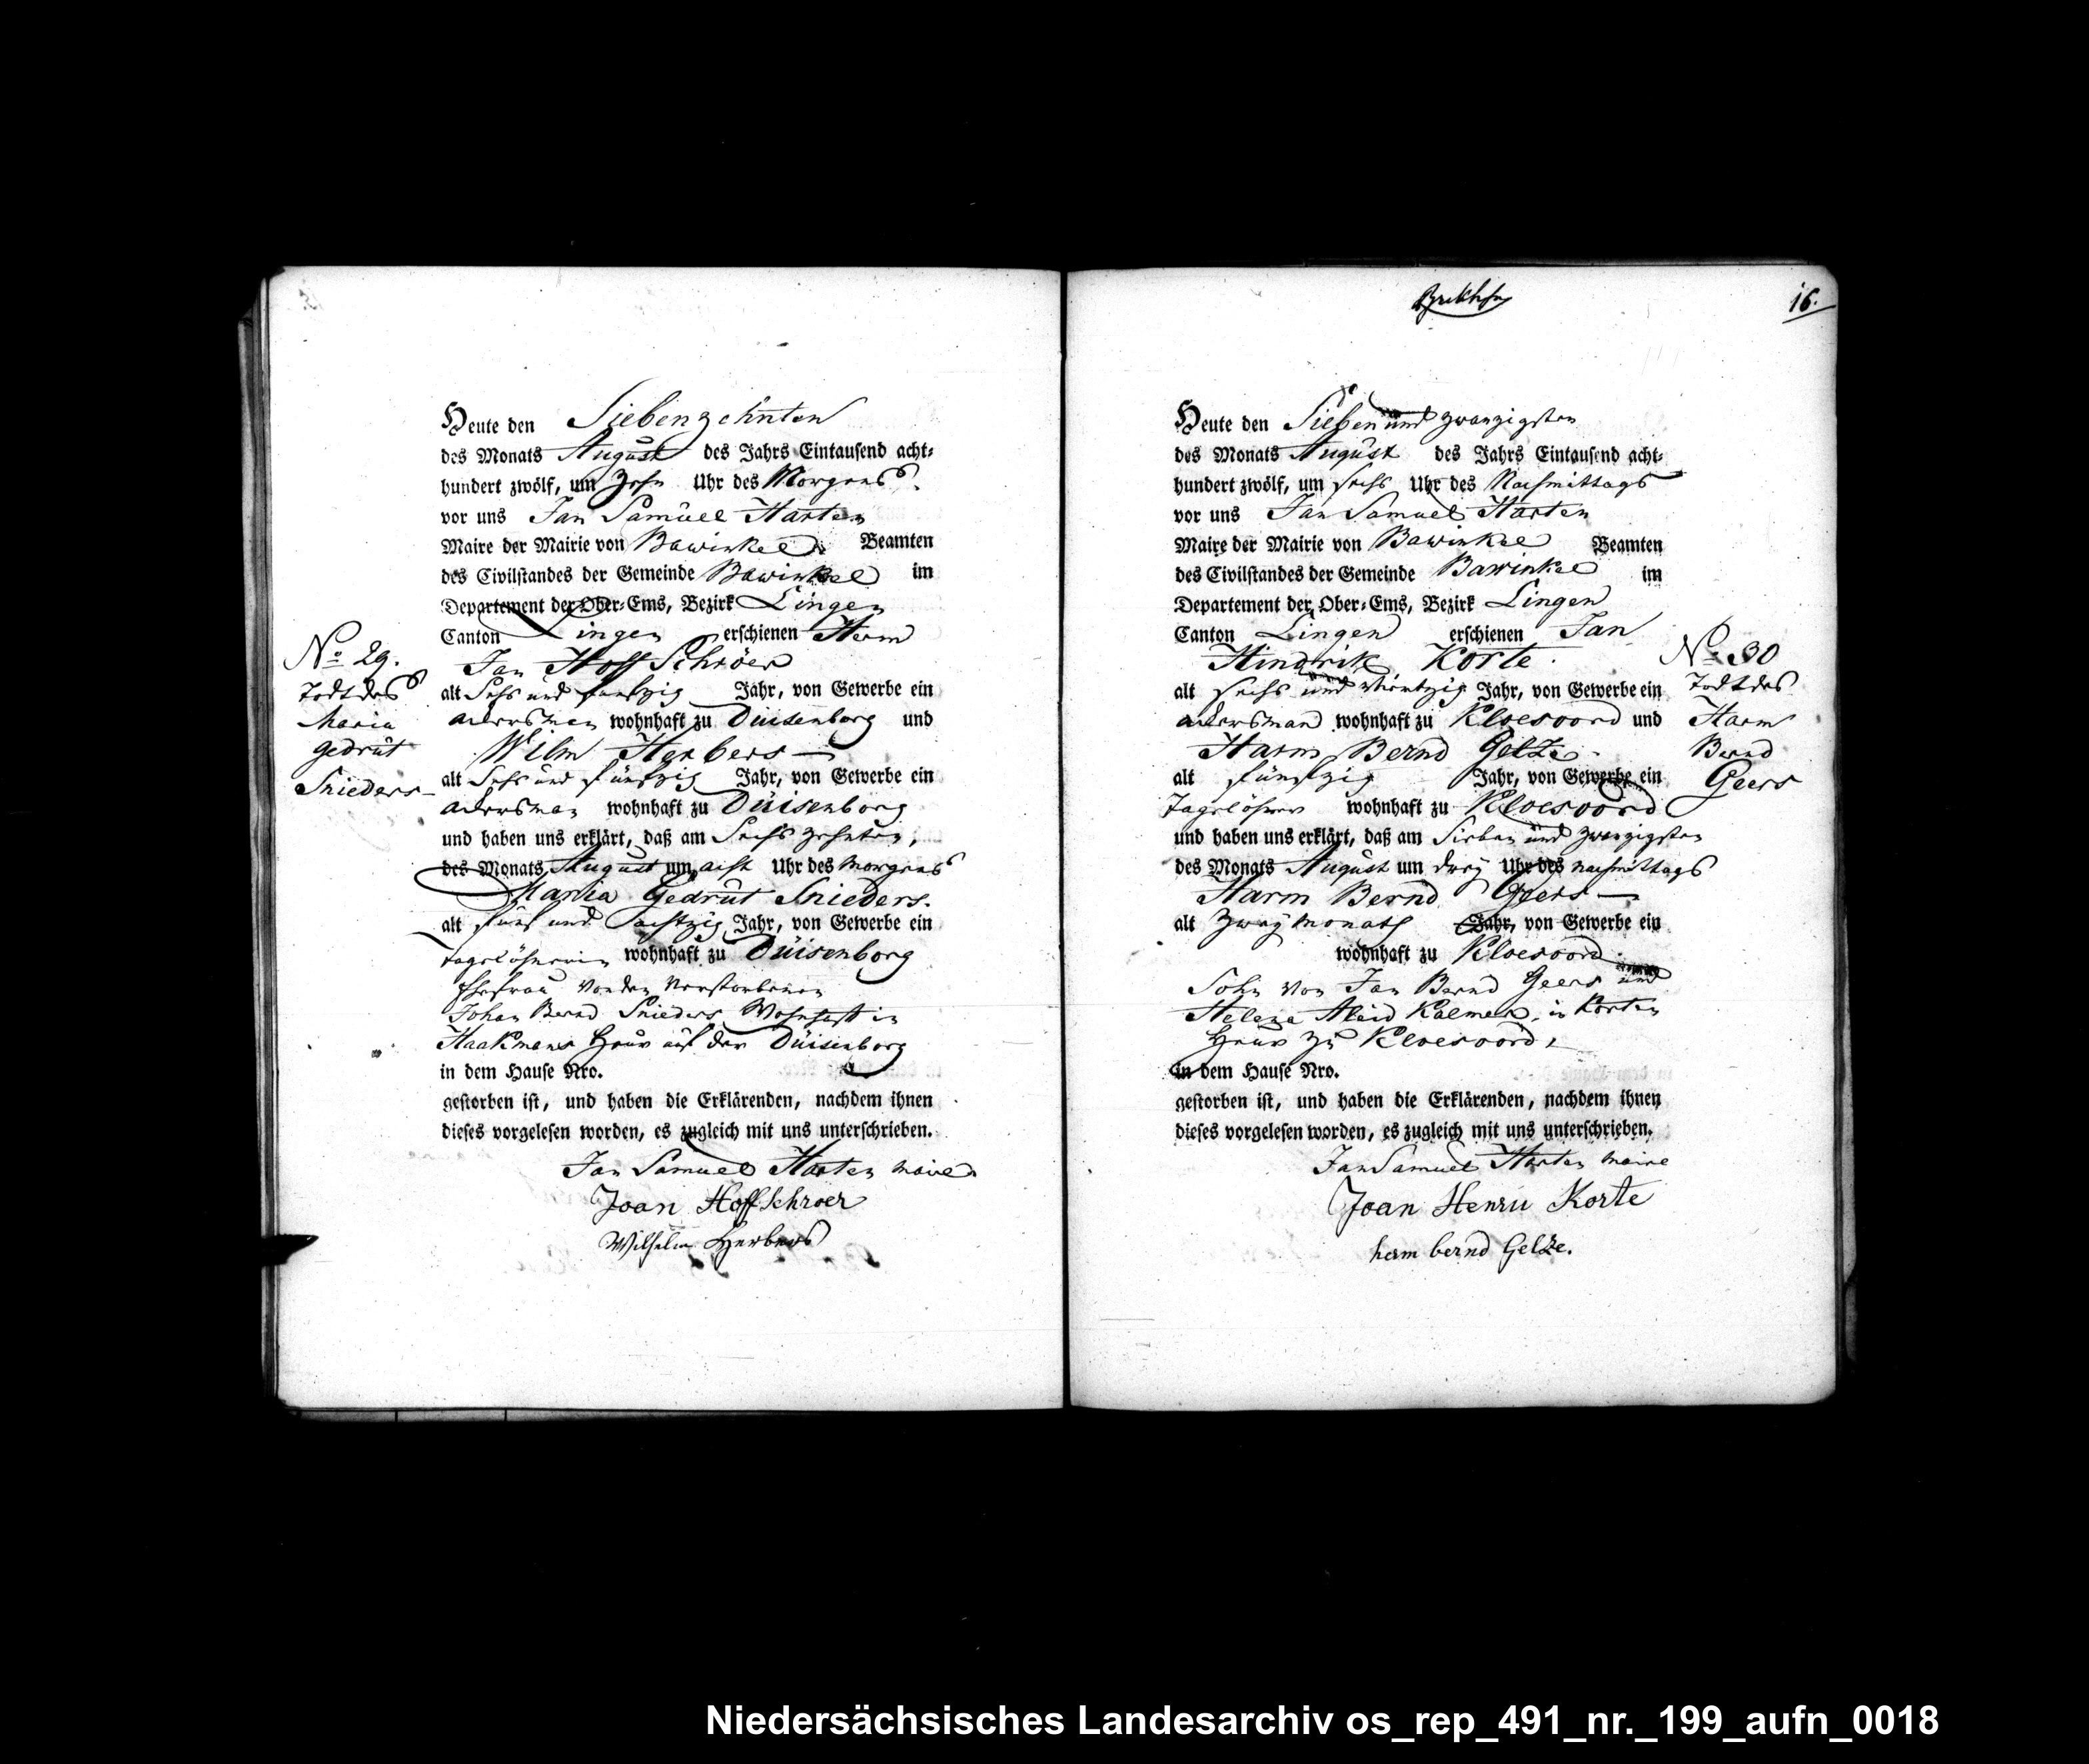 Heute den Siebenzehnten
des Monats August des Jahrs Eintausend acht-
hundert zwölf, um Zehn Uhr des Morgens.
vor uns Jan Samuel Harten
Maire der Mairie von Bawinkel Beamten
des Civilstandes der Gemeinde Bawinkel im
Departement der Ober-Ems, Bezirk Lingen
Canton Lingen erschienen Herm
Jan Hoff Schröer
alt Sechs und funfzig Jahr, von Gewerbe ein
ackersman wohnhaft zu Duisenborg und
Wilm Herbers
alt Sechs und fünfzig Jahr, von Gewerbe ein
ackersman wohnhaft zu Düisenborg
und haben uns erklärt, daß am Sechszehnten,
des Monats August um acht Uhr des Morgens
Maria Gedrut Snieders.
alt fünf und Sechtzig Jahr, von Gewerbe ein
tagelöhnerin wohnhaft zu Düisenborg
Ehefrau von den Verstorbenen
Johan Bernd Snieders Wohnhaft in
Haakmans Haus auf der Düisenborg
in dem Hause Nro.
gestorben ist, und haben die Erklärenden, nachdem ihnen
dieses vorgelesen worden, es zugleich mit uns unterschrieben.
Jan Samuel Harten Maire
Joan Hoffschroer
Wilhelm Herbers
No 29.
Todt des
Maria
gedrut
Snieders
16.
Heute den Sieben und zwanzigsten
des Monats August des Jahrs Eintausend acht-
hundert zwölf, um sechs Uhr des Nachmittags
vor uns Jan Samuel Harten
Maire der Mairie von Bawinkel Beamten
des Civilstandes der Gemeinde Bawinkel im
Departement der Ober-Ems, Bezirk Lingen
Canton Lingen erschienen Jan
Hindrik Korte.
alt sechs und viertzig Jahr, von Gewerbe ein
ackersmand wohnhaft zu Kloesoord und
Harm Bernd Gelze
alt fünftzig Jahr, von Gewerbe ein
Tagelöhner wohnhaft zu Kloesoord
und haben uns erklärt, daß am Sieben und zwanzigsten
des Monats August um drey Uhr des nachmittags
Harm Bernd Geers
alt Zwey Monath Jahr, von Gewerbe ein
wohnhaft zu Kloesoord
Sohn von Jan Bernd Geers und
Helena Aleid Kalmer, in Korten
Haus zu Kloesoord,
in dem Hause Nro.
gestorben ist, und haben die Erklärenden, nachdem ihnen
dieses vorgelesen worden, es zugleich mit uns unterschrieben.
Jan Samuel Harten Maire
Joan Henru Korte
herm bernd Gelze.
No 30
Todt des
Harm
Bernd
Geers
Niedersächsisches Landesarchiv os_rep_491_nr._199_aufn_0018